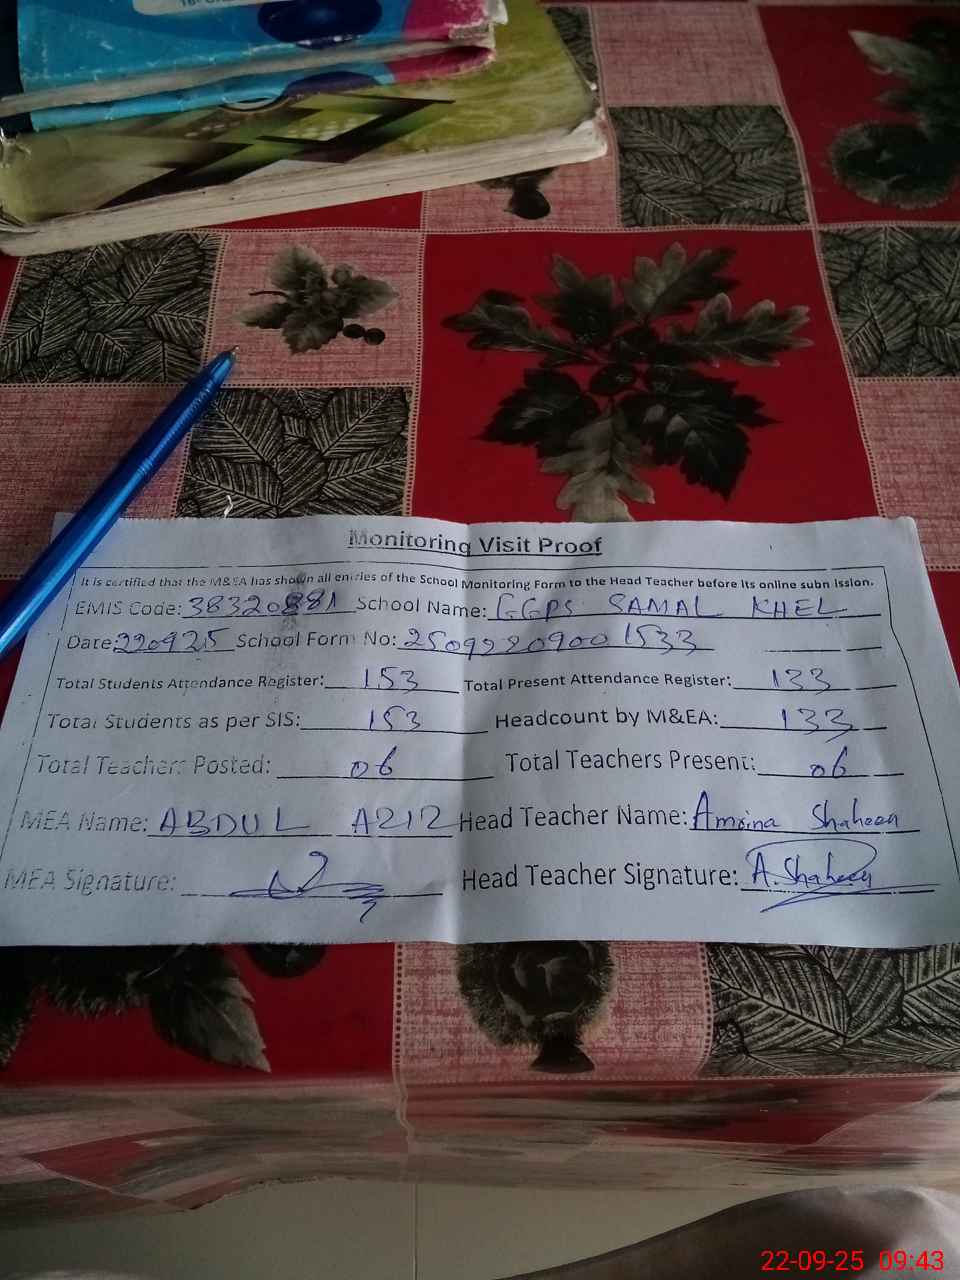 Monitoring Visit Proof
It is certified that the M&EA has shown all entries of the School Monitoring Form to the Head Teacher before its online submission.
EMIS Code: 38320881 School Name: GGPS SAMAL KHEL
Date: 220925 School Form No: 25092209001533
Total Students Attendance Register: 153 Total Present Attendance Register: 133
Total Students as per SIS: 153 Headcount by M&EA: 133
Total Teachers Posted: 06 Total Teachers Present: 06
MEA Name: ABDUL AZIZ Head Teacher Name: Amoina Shaheen
MEA Signature: Head Teacher Signature: A.Shaheen
22-09-25 09:43